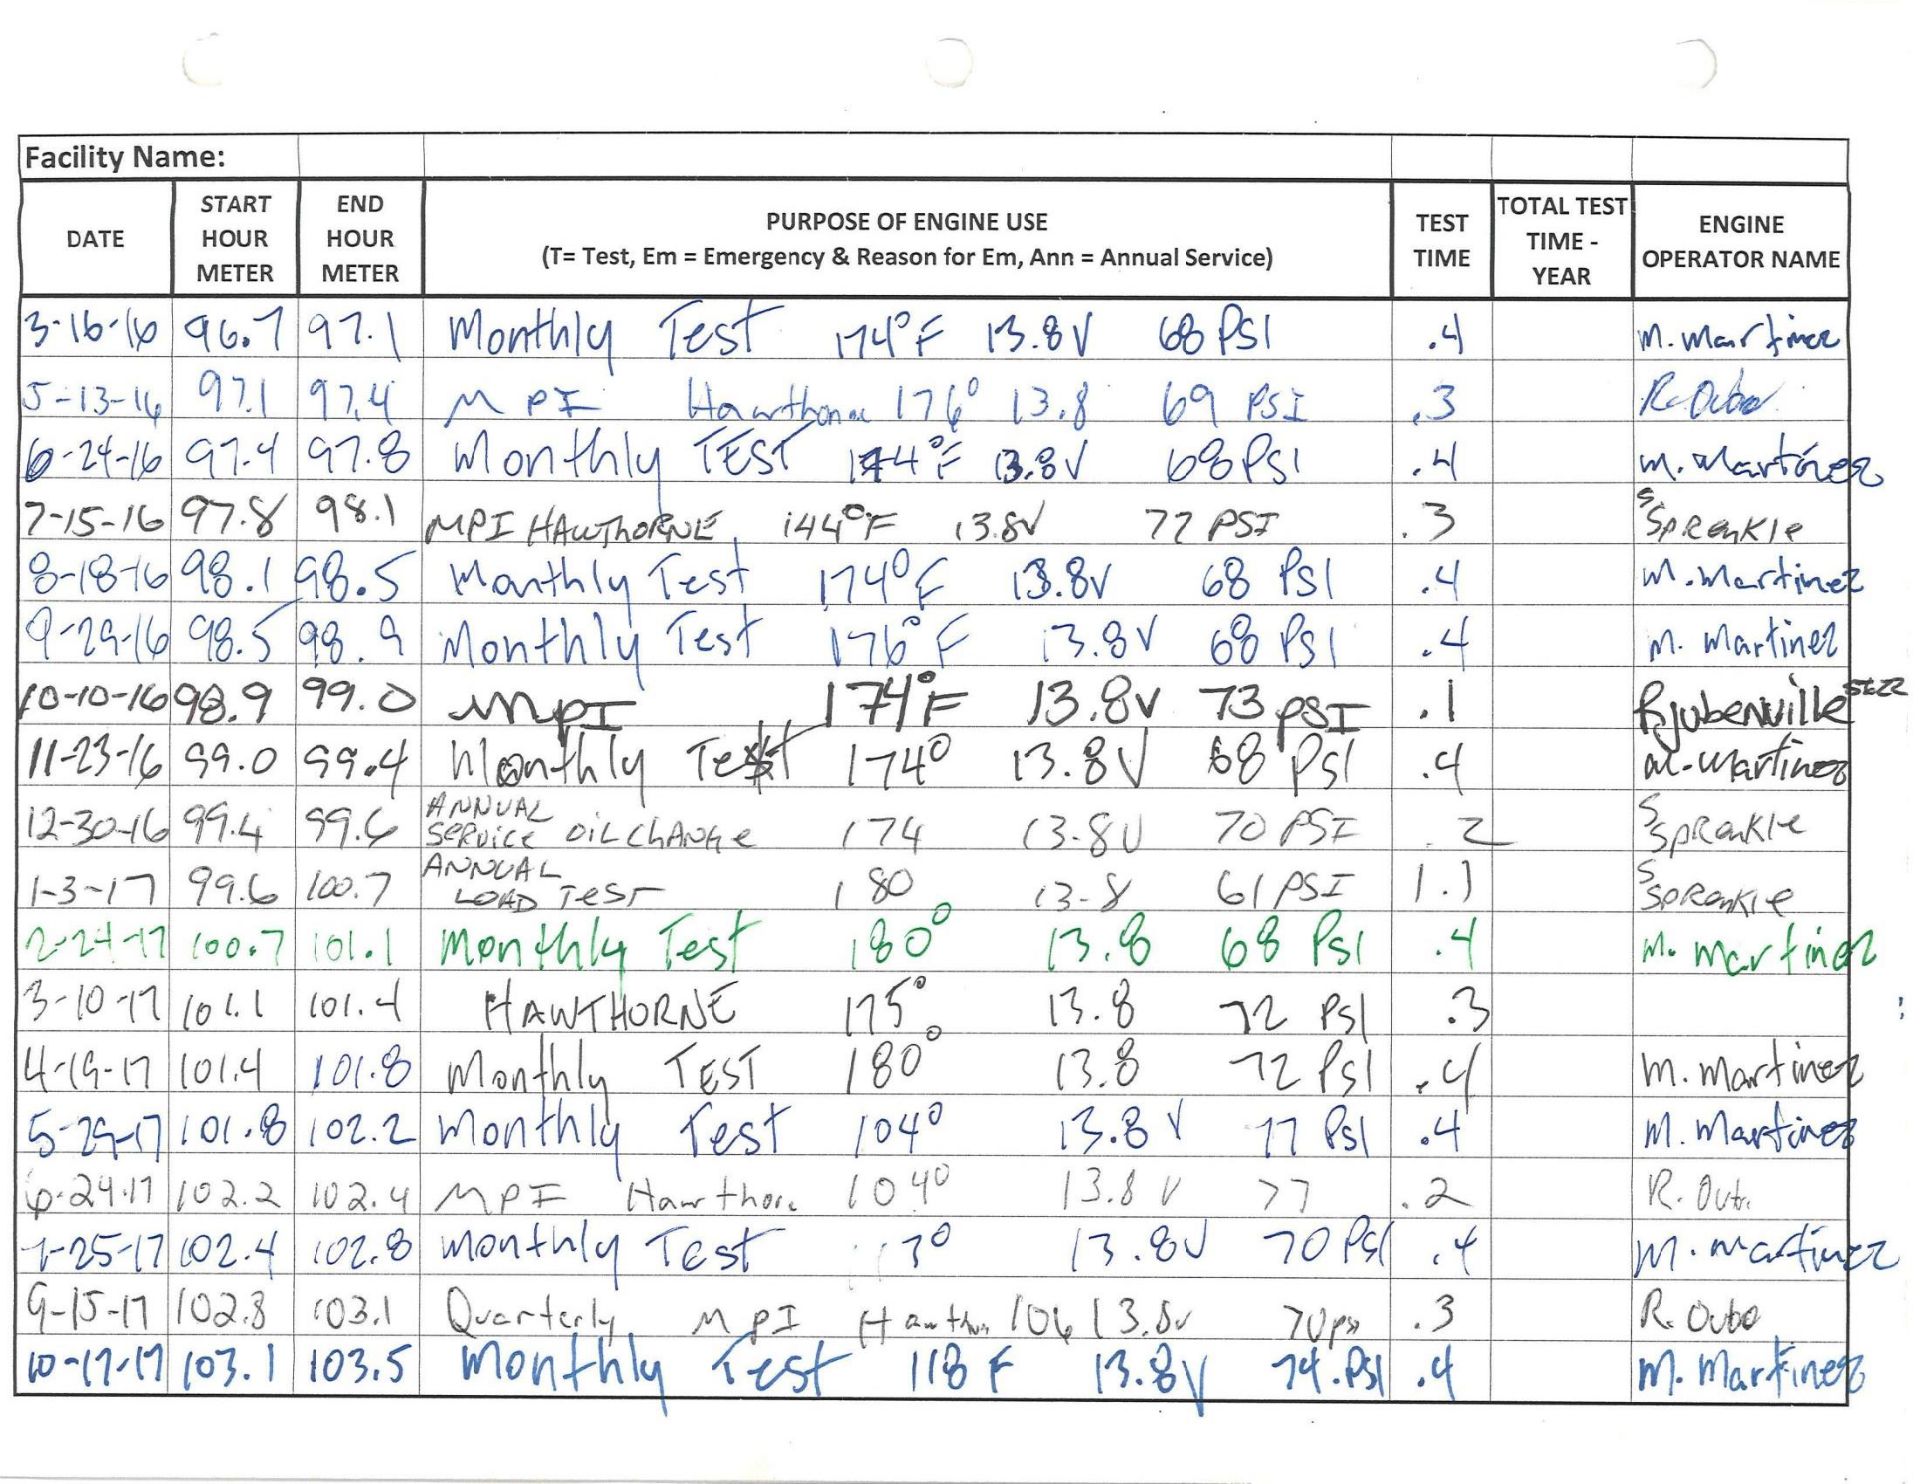 Facility Name:
DATE START HOUR METER END HOUR METER PURPOSE OF ENGINE USE (T= Test, Em = Emergency & Reason for Em, Ann = Annual Service) TEST TIME TOTAL TEST TIME - YEAR ENGINE OPERATOR NAME
3-16-16 96.7 97.1 Monthly Test 174°F 13.8V 68 PSI .4 M. Martinez
5-13-16 97.1 97.4 MPI Hawthorne 176° 13.8 69 PSI .3 R. Oubo
6-24-16 97.4 97.8 Monthly TEST 174°F 13.8V 68 PSI .4 M. Martinez
7-15-16 97.8 98.1 MPI HAWTHORNE 144°F 13.8V 77 PSI .3 S Sprenkle
8-18-16 98.1 98.5 Monthly Test 174°F 13.8V 68 PSI .4 M. Martinez
9-29-16 98.5 98.9 Monthly Test 176°F 13.8V 68 PSI .4 M. Martinez
10-10-16 98.9 99.0 MPI 174°F 13.8V 73 PSI .1 RJubenville
11-23-16 99.0 99.4 Monthly Test 174° 13.8V 68 PSI .4 M. Martinez
12-30-16 99.4 99.6 ANNUAL SERVICE OIL CHANGE 174 13.8V 70 PSI .2 S Sprenkle
1-3-17 99.6 100.7 ANNUAL LOAD TEST 180 13.8 61 PSI 1.1 S Sprenkle
2-24-17 100.7 101.1 Monthly Test 180° 13.8 68 PSI .4 M. Martinez
3-10-17 101.1 101.4 HAWTHORNE 175° 13.8 72 PSI .3
4-19-17 101.4 101.8 Monthly TEST 180° 13.8 72 PSI .4 M. Martinez
5-29-17 101.8 102.2 Monthly Test 104° 13.8V 77 PSI .4 M. Martinez
6-24-17 102.2 102.4 MPI Hawthorne 104° 13.8V 77 .2 R.
7-25-17 102.4 102.8 Monthly Test 13.8V 70 PSI .4 M. Martinez
9-15-17 102.8 103.1 Quarterly MPI 106 13.8v 70psi .3 R. Oubo
10-17-17 103.1 103.5 Monthly Test 118 F 13.8V 74 PSI .4 M. Martinez